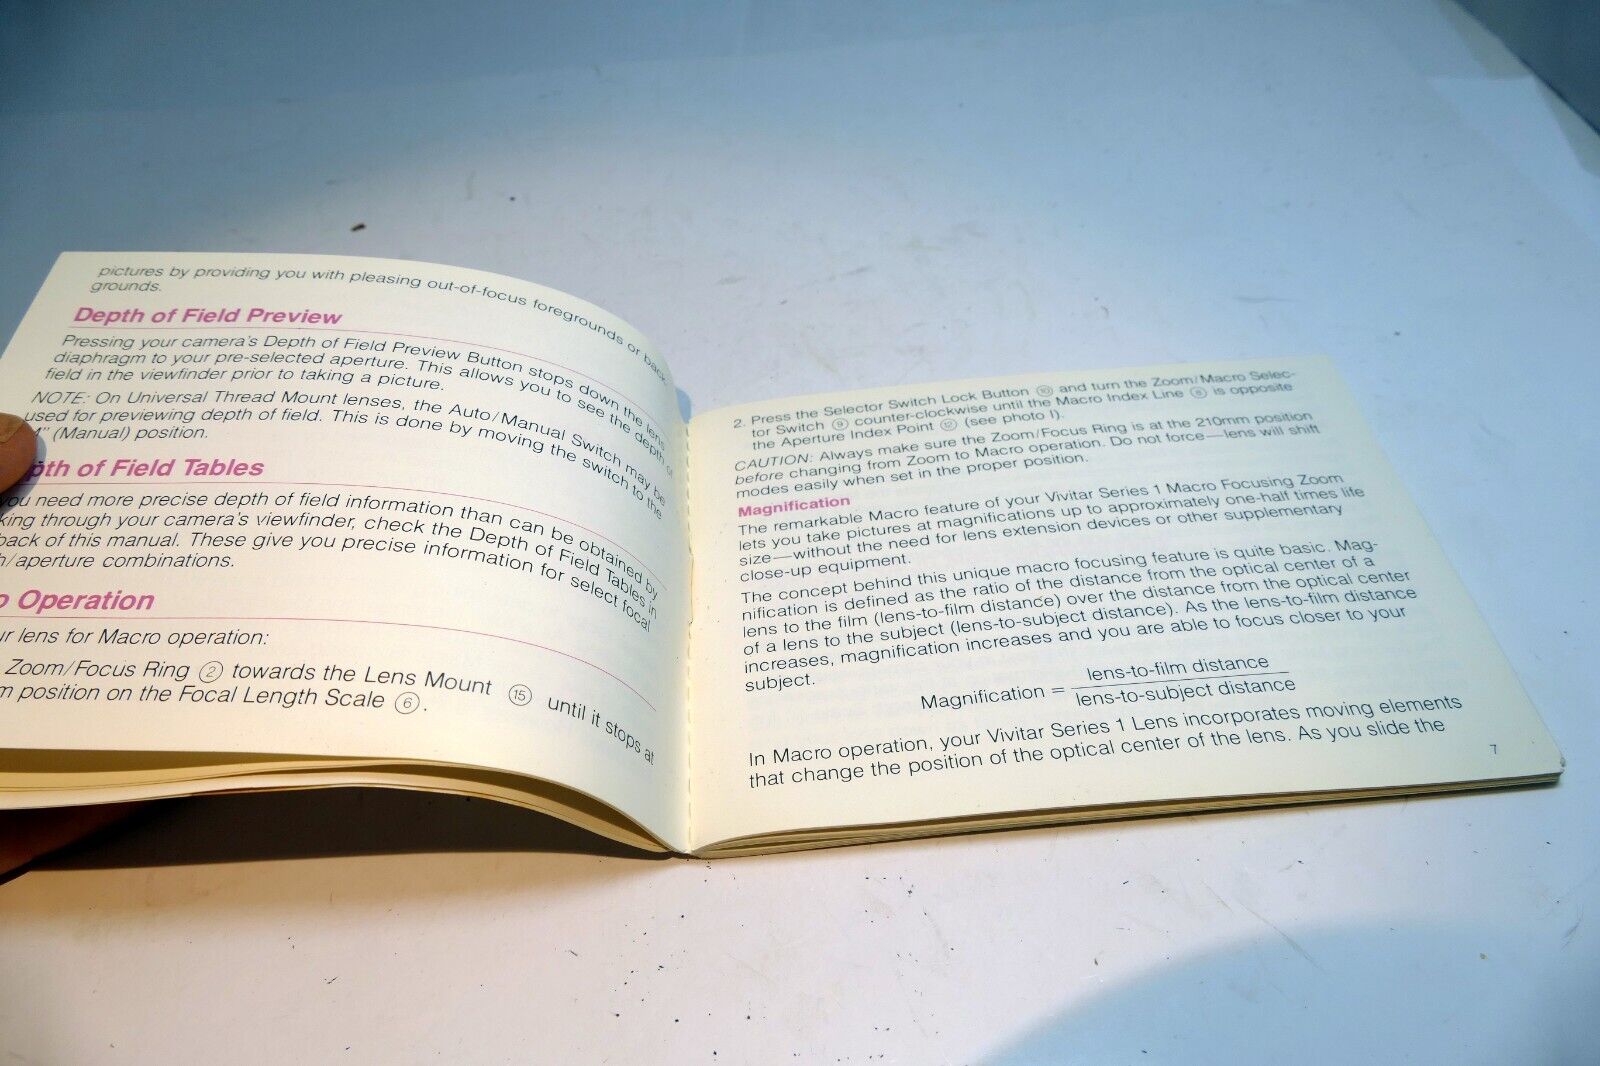 pictures by providing you with pleasing out-of-focus foregrounds or back
grounds.
Depth of Field Preview
Pressing your camera's Depth of Field Preview Button stops down the lens
diaphragm to your pre-selected aperture. This allows you to see the depth of
field in the viewfinder prior to taking a picture.
NOTE: On Universal Thread Mount lenses, the Auto/Manual Switch may be
used for previewing depth of field. This is done by moving the switch to the
" (Manual) position.
pth of Field Tables
you need more precise depth of field information than can be obtained by
king through your camera's viewfinder, check the Depth of Field Tables in
back of this manual. These give you precise information for select focal
h/aperture combinations.
o Operation
ur lens for Macro operation:
Zoom/Focus Ring ② towards the Lens Mount ⑮ until it stops at
m position on the Focal Length Scale ⑥.
2. Press the Selector Switch Lock Button ⑩ and turn the Zoom/Macro Selec-
tor Switch ⑨ counter-clockwise until the Macro Index Line ⑧ is opposite
the Aperture Index Point ⑫ (see photo I).
CAUTION: Always make sure the Zoom/Focus Ring is at the 210mm position
before changing from Zoom to Macro operation. Do not force—lens will shift
modes easily when set in the proper position.
Magnification
The remarkable Macro feature of your Vivitar Series 1 Macro Focusing Zoom
lets you take pictures at magnifications up to approximately one-half times life
size—without the need for lens extension devices or other supplementary
close-up equipment.
The concept behind this unique macro focusing feature is quite basic. Mag-
nification is defined as the ratio of the distance from the optical center of a
lens to the film (lens-to-film distance) over the distance from the optical center
of a lens to the subject (lens-to-subject distance). As the lens-to-film distance
increases, magnification increases and you are able to focus closer to your
subject.
lens-to-film distance
Magnification =
lens-to-subject distance
In Macro operation, your Vivitar Series 1 Lens incorporates moving elements
that change the position of the optical center of the lens. As you slide the
7